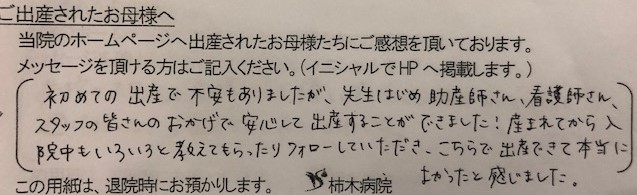 ご出産されたお母様へ
当院のホームページへ出産されたお母様たちにご感想を頂いております。
メッセージを頂ける方はご記入ください。(イニシャルでHPへ掲載します。)
初めての出産で不安もありましたが、先生はじめ助産師さん、看護師さん、
スタッフの皆さんのおかげで安心して出産することができました!産まれてから入
院中もいろいろと教えてもらったりフォローしていただき、こちらで出産できて本当に
よかったと感じました。
この用紙は、退院時にお預かりします。 柿木病院